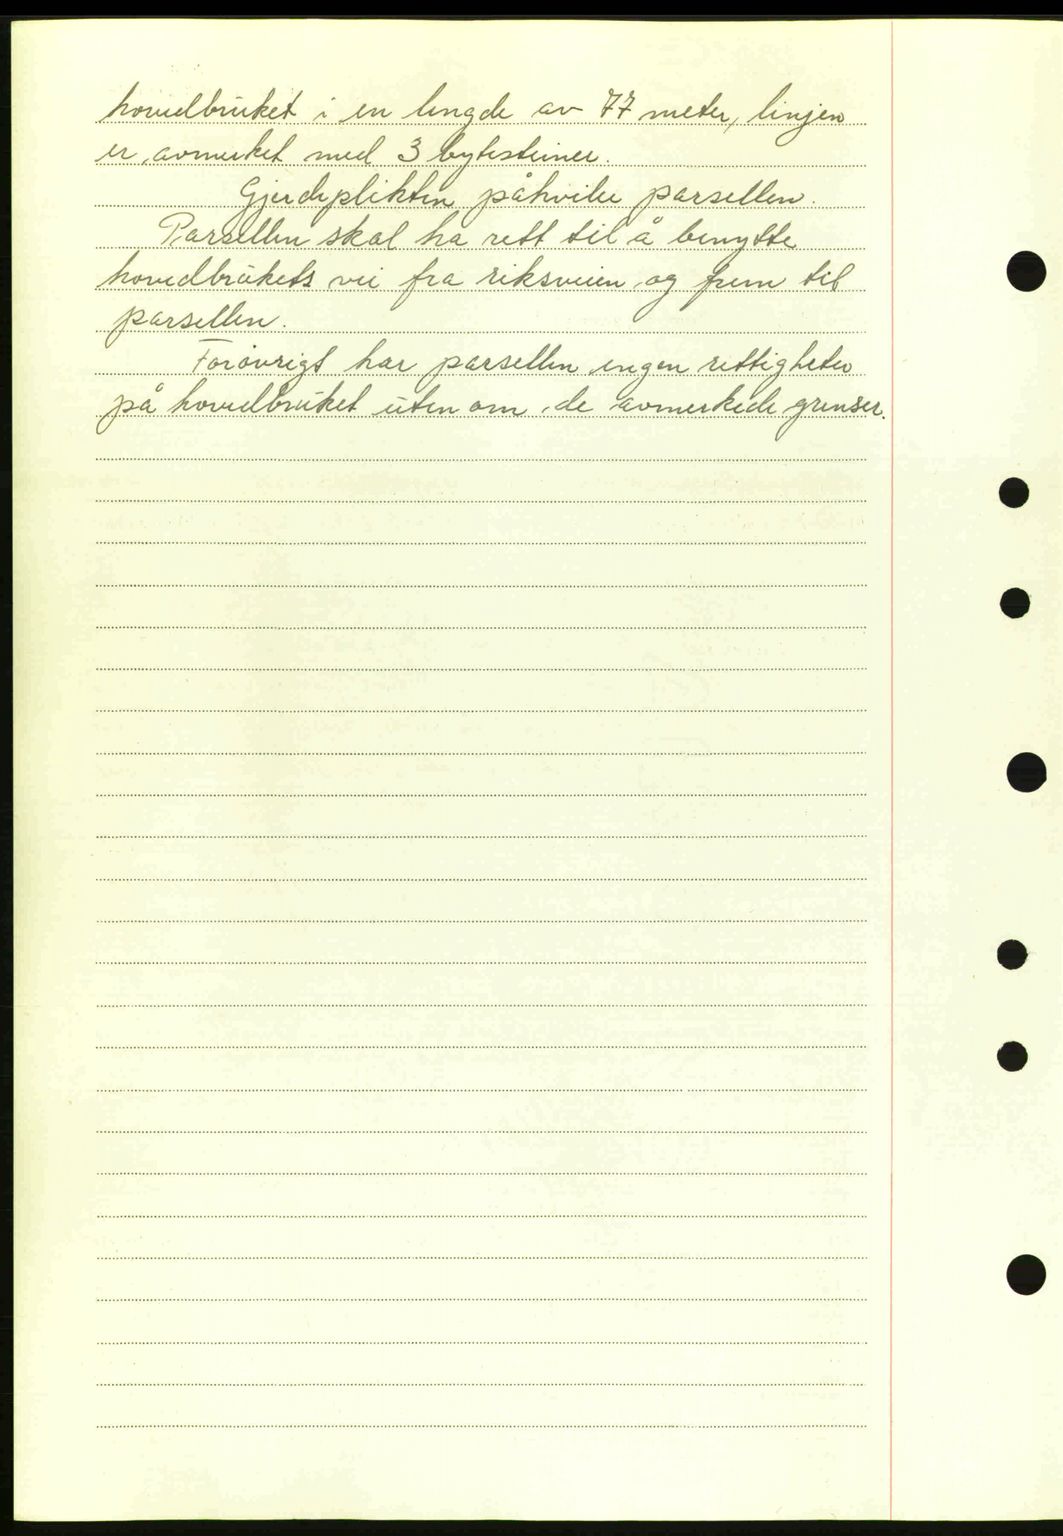 hovedbruket i en lengde av 77 meter, linjen
er avmerket med 3 bytesteiner.
Gjerdeplikten påhviler parsellen.
Parsellen skal ha rett til å benytte
hovedbrukets vei fra riksveien og frem til
parsellen.
Forøvrigt har parsellen ingen rettigheter
på hovedbruket uten om de avmerkede grenser.